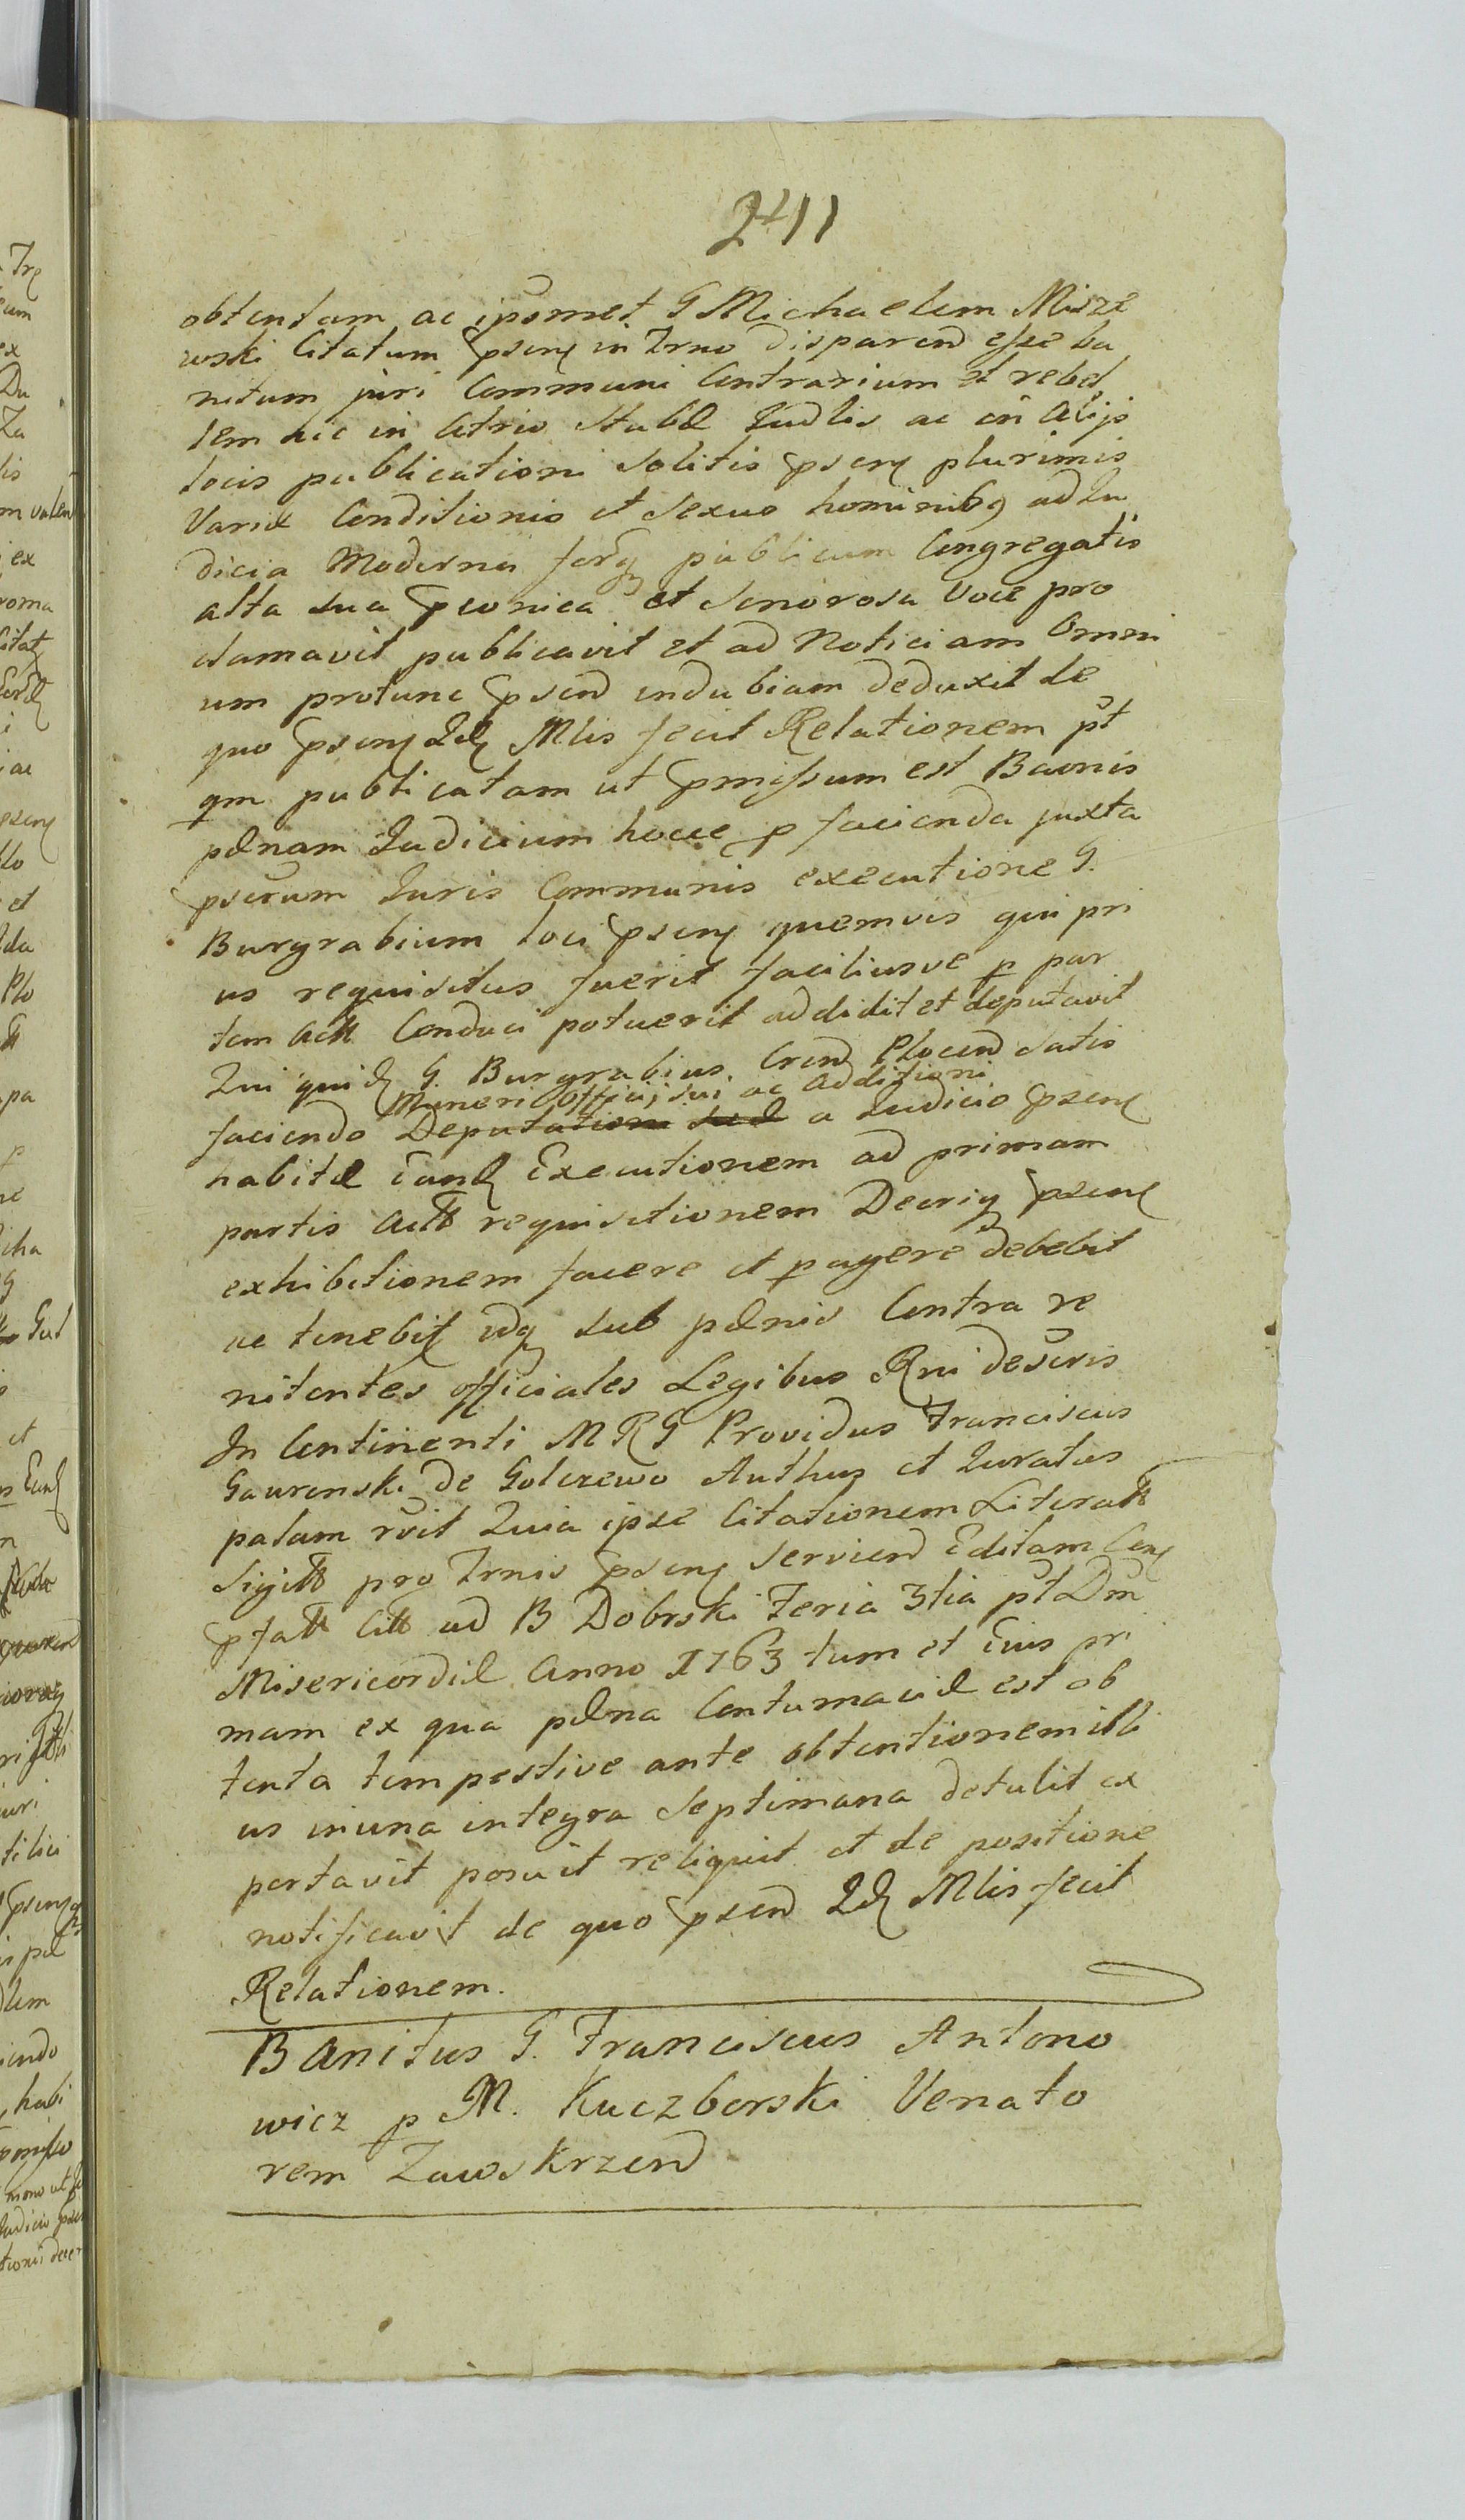 241
obtentam ac ipsmet G Michaelem Misze
wski Citatum psenṯ in Trno disparend esse ba
nitum juri Communi Contrarium et rebel
lem hic in Atrio Stubæ Judlis ac in Alijs
locis publicationi solitis psenṯ plurimis
Variæ Conditionis et sexus hominibq ad Ju
dicia Moderna publicum Congregatis
alta sua pconica et Sonorosa Voce pro
clamavit publicavit et ad Noticiam Omni
um protunc psend indubiam deduxit de
quo psenṯ Idę Mlis fecit Relationem pt
qm publicatam ut pmissum est Baonis
pænam Judicium hocce p facienda juxta
pscrum Juris Communis executione G.
Burgrabium loci psenṯ quemvis qui pri
us requisitus fuerit faciliusve p par
tem Actt Conduci potuerit addidit et deputavit
Qui quidę G. Burgrabius Crend Plocend satis
Muneri Officij sui ac Additioni
faciendo Deputationi suæ a Judicio psenṯ
habitæ Eandę Executionem ad primam
partis Actt requisitionem Decriq psenṯ
exhibitionem facere et pagere debebit
ac tenebit idq sub pænis Contra re
nitentes officiales Legibus Rni descris
In Continenti MRG Providus Franciscus
Gaurenski de Golczewo Authus et Juratus
palam rvit Quia ipse Citationem Literatt
Sigitt pro Trnis psenṯ serviend Editam
pfatt Citt ad B Dobrski Feria 3tia pt Dm
Misericordiæ Anno 1763 tum et Eius pri
mam ex qua pæna Contumaciæ est ob
tenta tempestive ante obtentionem illi
us in una integra Septimana detulit ex
portavit posuit reliquit et de positione
notificavit de quo psend Idę Mlis fecit
Relationem.
Banitus G. Franciscus Antono
wicz p M. Kuczborski Venato
rem Zawskrzend